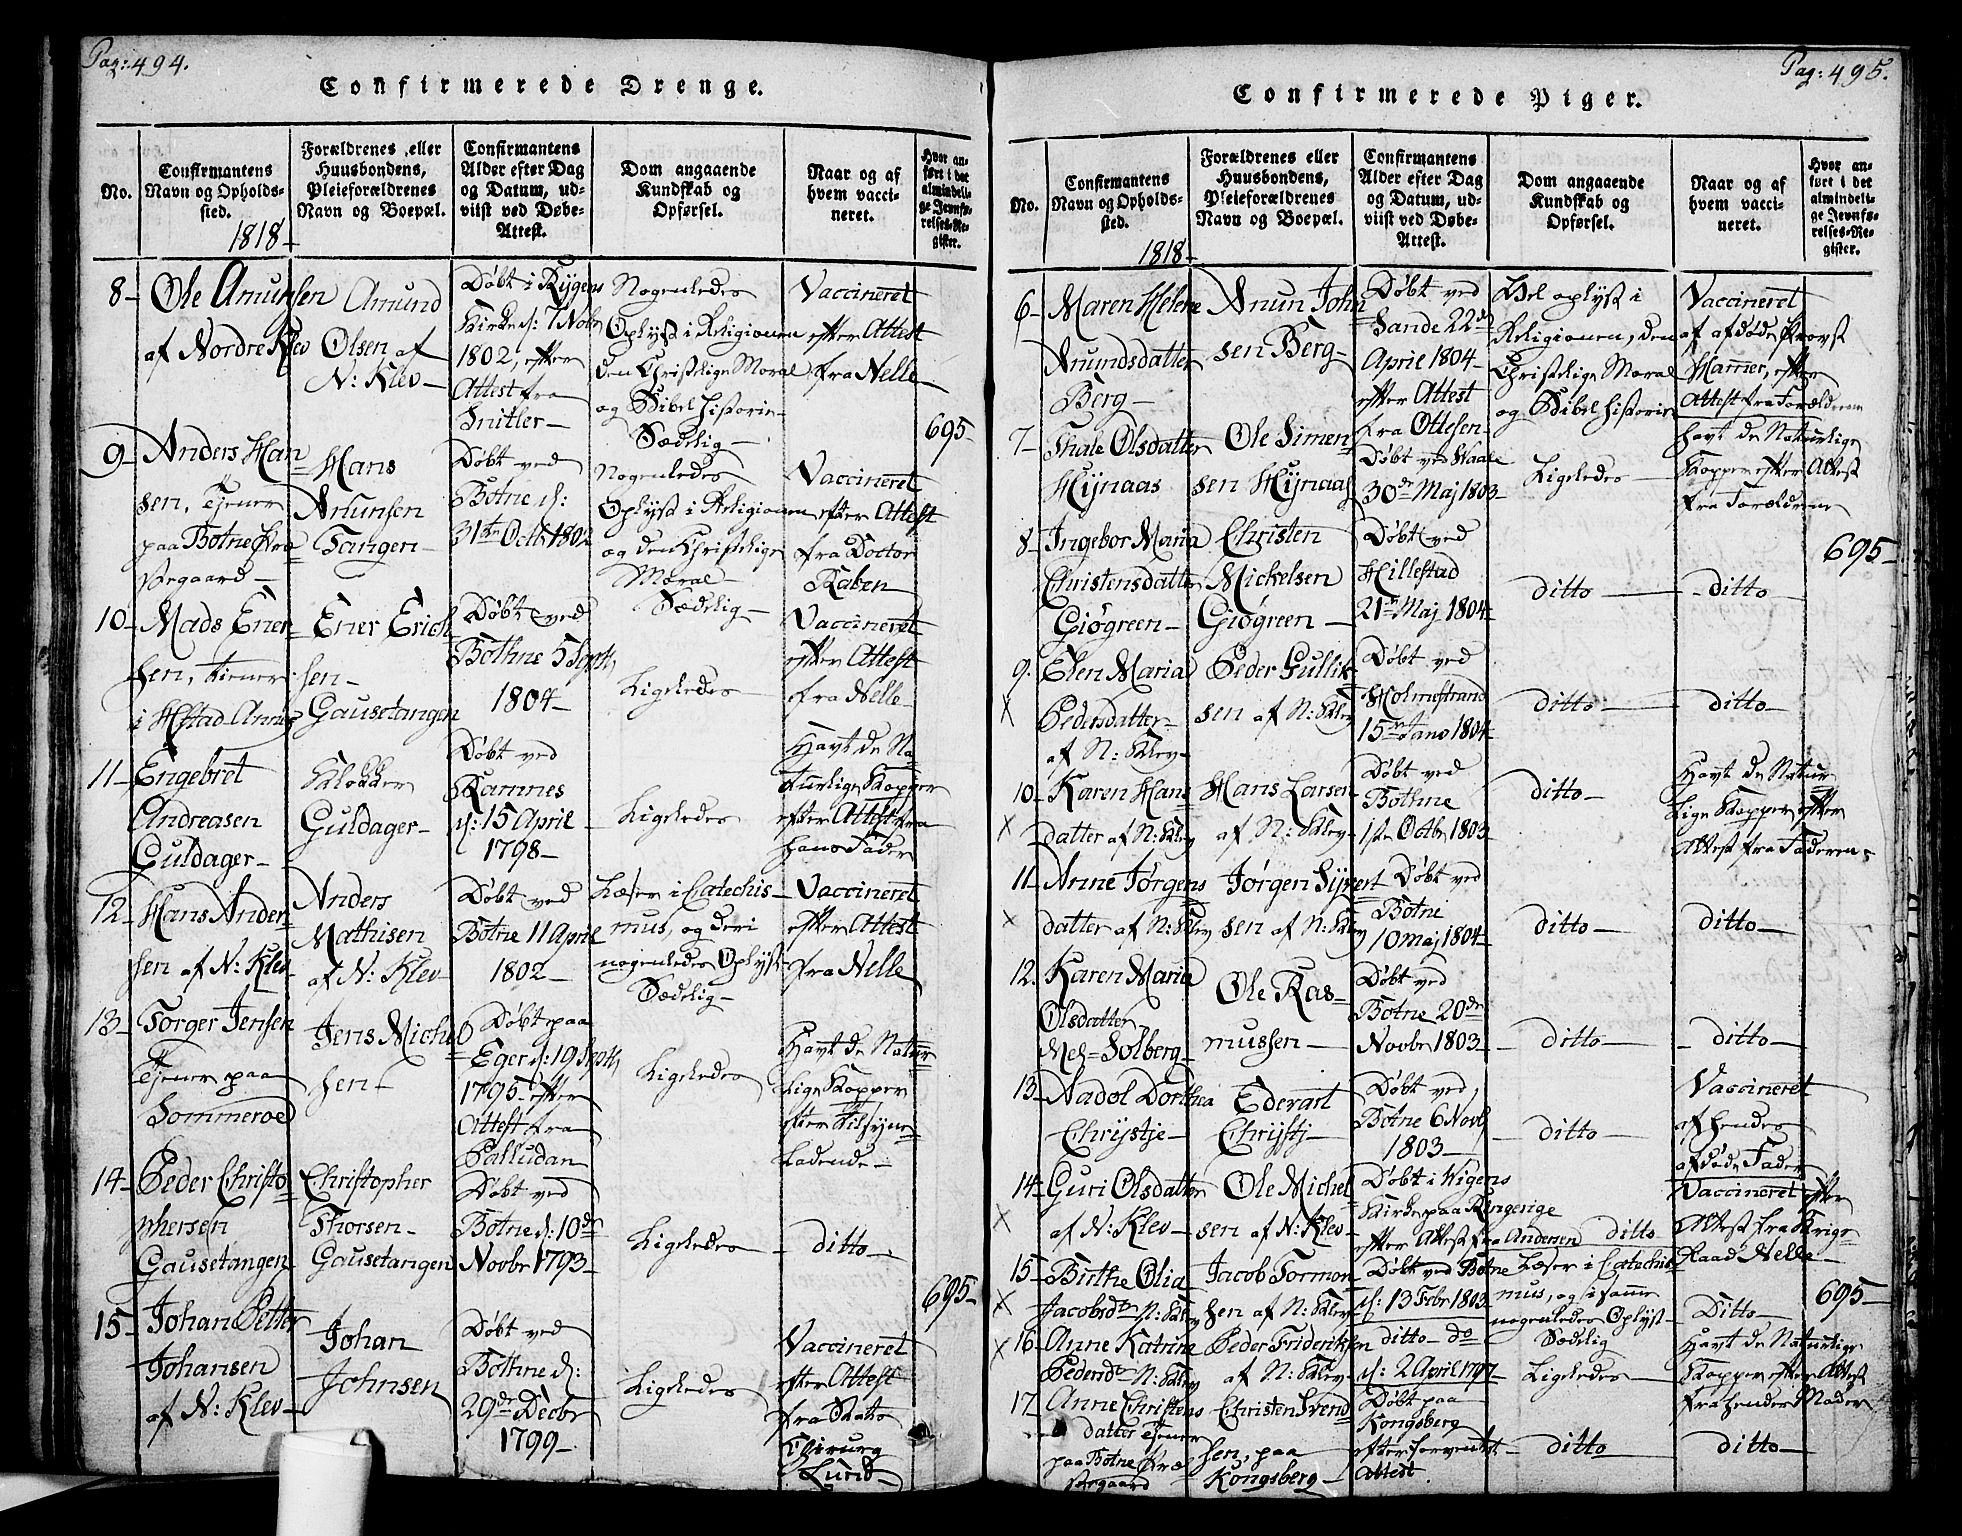 Pag: 494.
Confirmerede Drenge.
No.
Confirmantens
Navn og Opholds-
sted.
1818-
Forældrenes eller
Huusbondens,
Pleieforældrenes
Navn og Boepæl.
Confirmantens
Alder efter Dag
og Datum, ud-
viist ved Døbe-
Attest.
Dom angaaende
Kundskab og
Opførsel.
Naar og af
hvem vacci-
neret.
Hvor an-
ført i det
almindeli-
ge Jevnfø-
relses-Re-
gister.
8-
Ole Amunsen
af Nordre Klev
Amund
Olsen af
N: Klev-
Døbt i Rygens
Kirke d: 7 Novbr
1802, efter
Attest fra
Snitler-
Nogenledes
Oplyst i Religionen
den Christelige Moral
og Bibel historie-
Sædelig-
Vaccineret
efter Attest
fra Nelle-
695-
9-
Anders Han
sen, Tjener
paa Botne Præ
stegaard-
Hans
Tangen-
Døbt ved
Botne d:
31te Octb 1802
Nogenledes
Oplyst i Religionen
og den Christelige
Moral-
Sædelig-
Vaccineret
efter Attest
fra Doctor
Raben
10-
Mads Ener-
sen, tiener
Ener Erich
sen-
Gausetangen
Døbt ved
Bothne 5 Septb
1804-
Ligeledes-
Vaccineret
efter Attest
fra Nelle-
11-
Engebret
Andreasen
Guldager-
Klokker
Guldager-
Døbt ved
Ramnes
d: 15 April
1798-
Ligeledes
Havt de Na
turlige Kopper
efter Attest fra
hans Fader
12-
Hans Ander
sen af N: Klev
Anders
Mathisen
af N: Klev-
Døbt ved
Botne 11 April
1802-
Læser i Catechis-
mus, og deri
nogenledes Oplyst-
Sædelig-
Vaccineret
efter Attest
fra Nelle
13-
Torger Jensen
Tjener paa
Sommeroe
Jens Michel
sen-
Døbt paa
Eger d: 19 Septb
1795 efter
Attest fra
Palludan
Ligeledes
Havt de Natur
lige Kopper
efter Tilsyne
ladende-
14-
Peder Christo
phersen
Gausetangen
Christopher
Thorsen-
Gausetangen
Døbt ved
Botne d: 10de
Novbr 1793-
Ligeledes
ditto-
695-
15-
Johan Petter
Johansen
af N: Klev-
Johan
Johnsen
Døbt ved
Bothne d:
29de Decbr
1799-
Ligeledes
Vaccineret
efter Attest
fra Stats
Chirurg
Lund-
Pag: 495.
Confirmerede Piger.
No.
Confirmantens
Navn og Opholds-
sted.
1818-
Forældrenes eller
Huusbondens,
Pleieforældrenes
Navn og Boepæl.
Confirmantens
Alder efter Dag
og Datum, ud-
viist ved Døbe-
Attest.
Dom angaaende
Kundskab og
Opførsel.
Naar og af
hvem vacci-
neret.
Hvor an-
ført i det
almindeli-
ge Jevnfø-
relses-Re-
gister.
6-
Maren Helene
Anundsdatter
Berg-
Anun John
sen Berg-
Døbt ved
Sande 22de
Aprie 1804-
efter Attest
fra Ottesen-
Vel oplyst i
Religionen, den
Christelige Moral
og Bibel historie
Vaccineret
af afdøde Provst
Hammer, efter
Attest fra Forælderne
7-
Thale Olsdatter
Hijnaas
Ole Simen
sen Hijnaas
Døbt ved Haale
30de Maj 1803-
Ligeledes
havt de Naturlige
Kopper efter Attest
fra Forældrene
8-
Ingebor Maria
Christensdatter
Giøgreen-
Christen
Mickelsen
Giøgreen-
Døbt ved
Hillestad
21de Maj 1804-
ditto-
-ditto-
695-
9.
Elen Maria
Pedersdatter-
af N: Klev-
Peder Gullik
sen af N: Klev
Døbt ved
Holmestrand
15de Jano 1804-
ditto-
ditto-
10-
Karen Hans
datter af N: Klev
Hans Larsen
af N: Klev-
Døbt ved
Bothne
1ste Octbr 1803
ditto-
Havt de Natur
lige Kopper efter
Attest fra Faderen-
11-
Anne Jørgens
datter af N: Klev
Jørgen Syvert
sen af N: Klev
Døbt ved
Botne
10 maj 1804-
ditto-
ditto-
12.
Karen Maria
Olsdatter
Mel= Solberg-
Ole Ras-
mussen-
Døbt ved
Botne 20de
Novbr 1803-
-ditto-
-ditto-
13-
Aadol Dorthea
Chrijstje-
Ederart
Chrijstj-
Døbt ved
Botne 6 Novb
1803-
ditto-
Vaccineret
af hendes
afdøde Fader
14-
Guri Olsdatter
af N: Klev-
Ole Michel
sen af N: Klev-
Døbt i Vigens
Kirke paa Ringerige
efter Attest fra Andersen
ditto
Vaccineret efter
Attest fra Krigs-
Raad Nelle-
15-
Birthe Olia
Jacobsdtr N: Klev
Jacob Tormon
sen af N: Klev
Døbt ved Botne
d: 13 Febr 1803-
Læser i Catechis
mus, og i samme
nogenledes Oplyst-
Sædelig
Ditto-
695-
16-
Anne Katrine
Pedersdtr N: Klev
Peder Frideriksen
af N: Klev-
ditto- do
d: 2 April 1797-
Ligeledes-
Havt de Naturlige
Kopper efter Attest
fra hendes Moder
17-
Anne Christens
datter Tjener
paa Botne Præ
stegaard
Christen Svend
sen, paa
Kongsberg-
Døbt paa
Kongsberg
efter forventet
Attest.
-ditto
ditto-